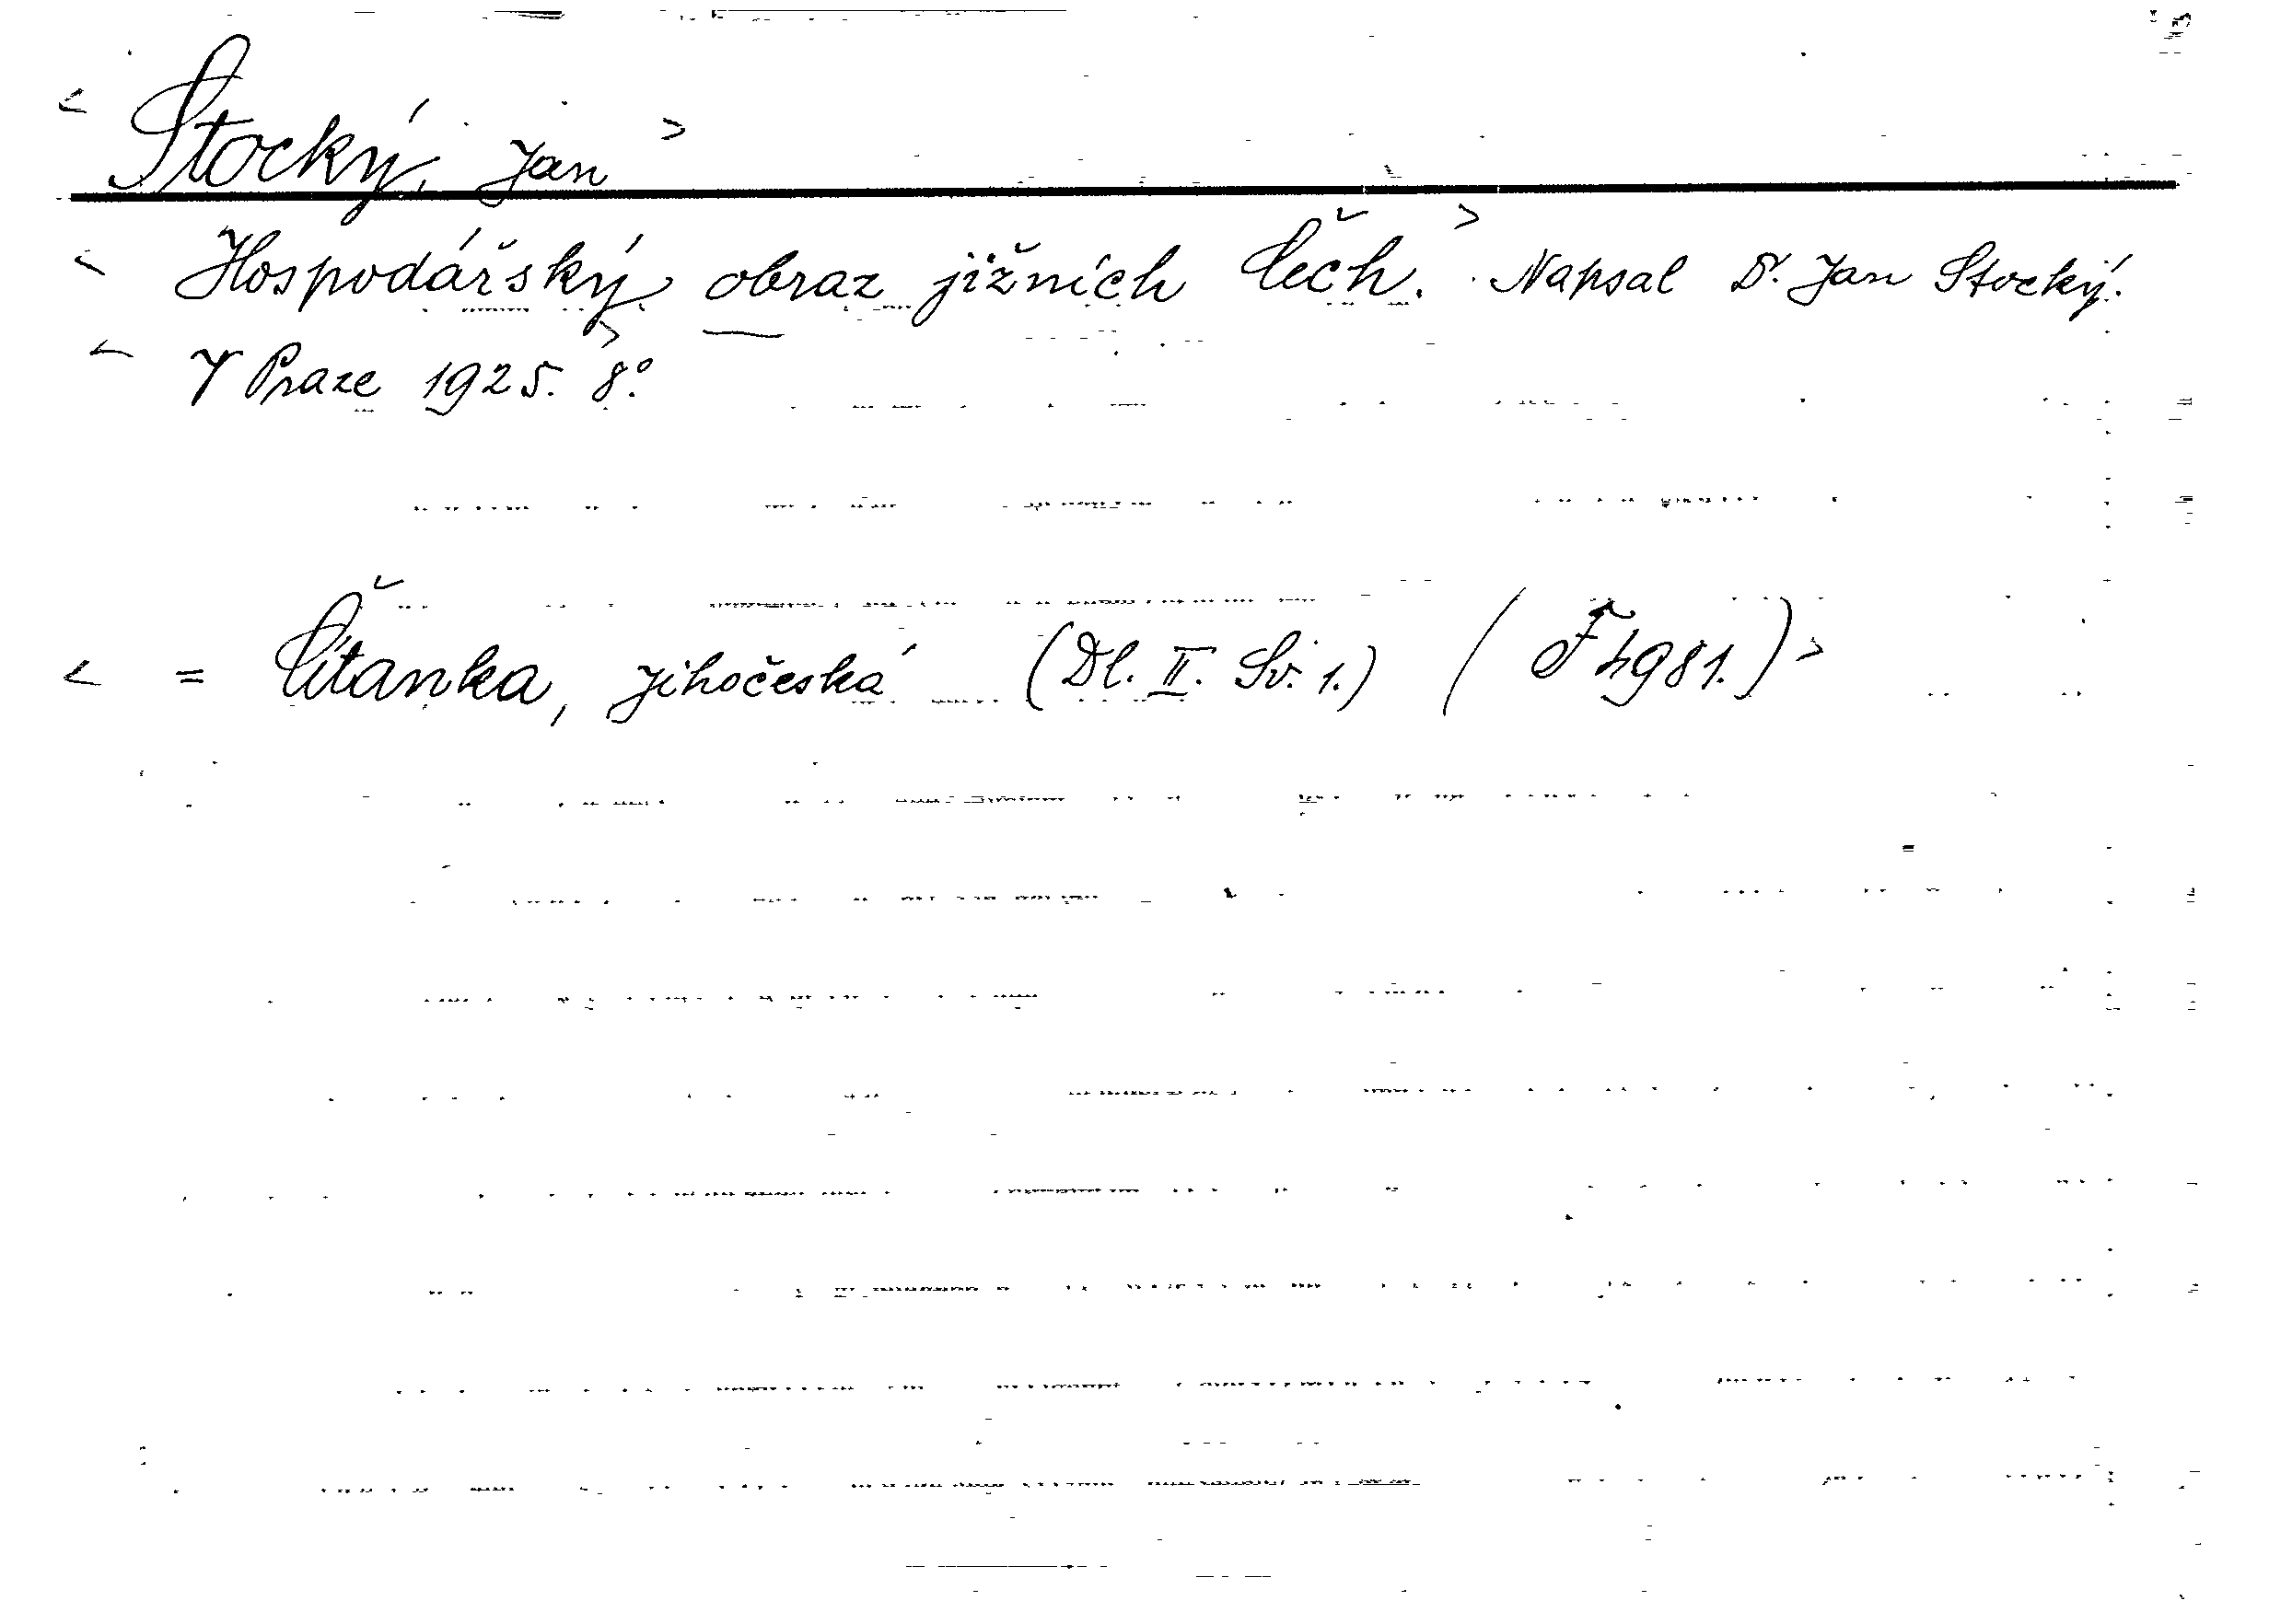 < Stocký, Jan >
< Hospodářský obraz jižních Čech. > Napsal Dr. Jan Stocký.
< V Praze 1925. 8°. >
< = Čítanka, jihočeská (Dl. II. Sv. 1.) (F 4981.) >